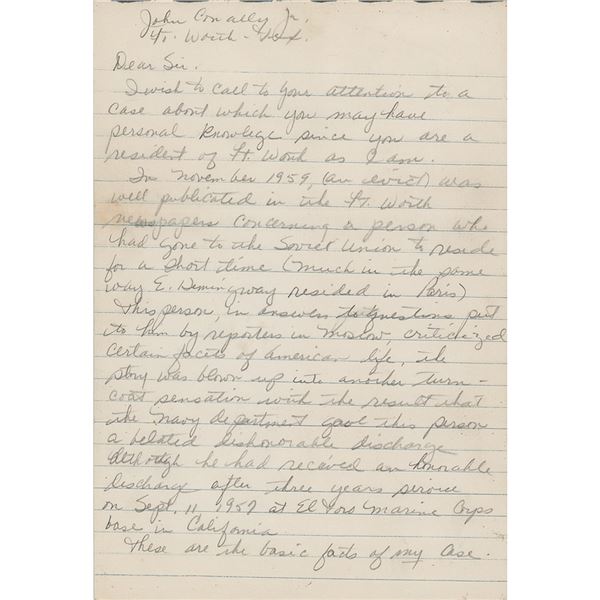 John Conally Jr.
Ft. Worth - Tex.
Dear Sir.
I wish to call to your attention to a
case about which you may have
personal knowlege since you are a
resident of Ft. Worth as I am.
In November 1959, (an evict) was
well publicated in the Ft. Worth
newspapers concerning a person who
had gone to the Soviet Union to reside
for a short time (much in the same
way E. Hemingway resided in Paris)
This person, in answers to questions put
to him by reporters in Moslow, criticized
certain facts of american life, the
story was blown up into another turn-
coat sensation with the result that
the Navy department gave this person
a belated dishonorable discharge
although he had received an honorable
discharge after three years service
on Sept. 11 1959 at El Toro Marine Corps
base in California
These are the basic facts of my case.